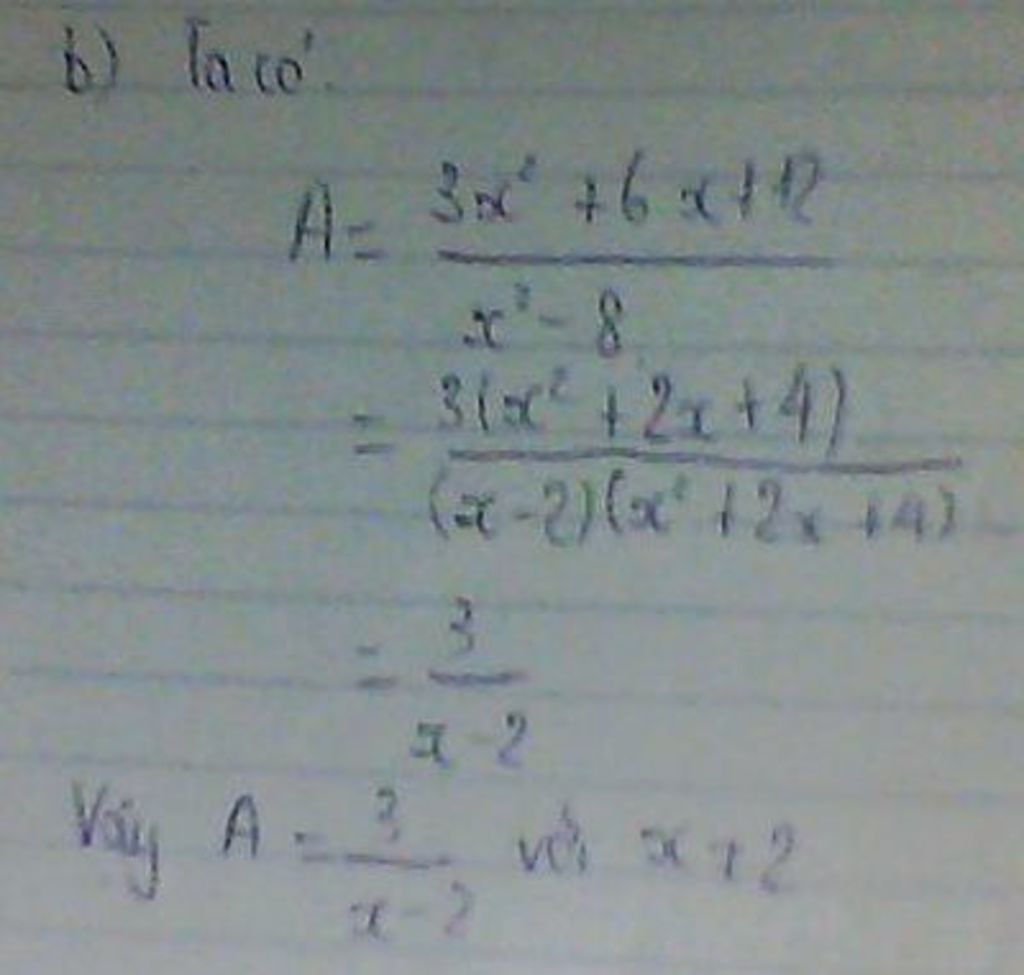 b) Ta có:
A = \frac{3x² + 6x + 12}{x³ - 8}
= \frac{3(x² + 2x + 4)}{(x - 2)(x² + 2x + 4)}
= \frac{3}{x - 2}
Vậy A = \frac{3}{x - 2} với x ≠ 2